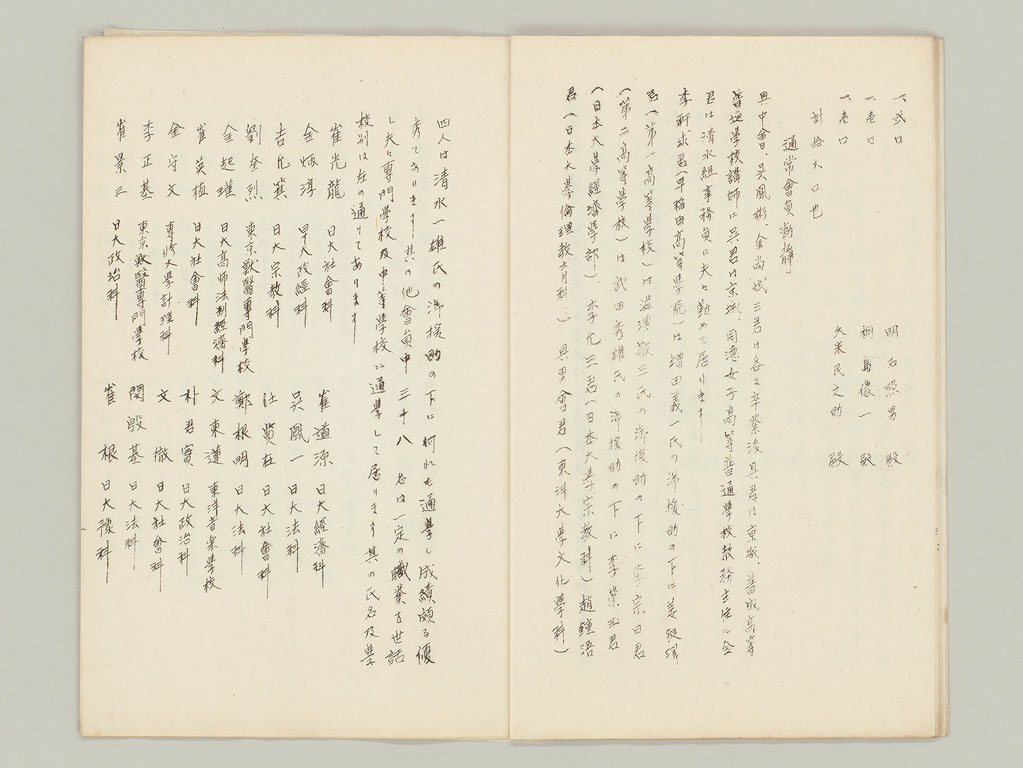 一、弐口 明石照男 殿
一、壱口 桐島像一 殿
一、壱口 久米民之助 殿
計拾六口也
通常會員動靜、
具中會、吳鳳彬、金尚 三君は各々卒業後具君は京城、普成高等
普通學校講師に吳君は京城、同德女子高等普通學校教務主任に金
君は清水組事務員に夫々勤めて居ります
李 求君(早稲田高等學院)は増田義一氏の御援助の下に姜
君(第一高等學校)は 澤敬三氏の御援助の下に 宗日君
(第二高等學校)は武田秀雄氏の御援助の下に李 君
(日本大學經濟學部)、李允三君(日本大學宗教科)趙鍾浯
君(日本大學倫理教育科)具中會君(東洋大學文化學科)
四人は清水一雄氏の御援助の下に何れも通學し成績頗る優
秀であります其の他會員中三十八名は一定の職業を世話
し夫々專門學校及中等學校に通學して居ります其の氏名及學
校別は左の通りであります
崔光龍 日大社會科 崔道源 日大經濟科
金炳淳 早大政經科 吳鳳一 日大法科
吉允箕 日大宗教科 汪賛在 日大社會科
劉奎烈 東京獸醫專門學校 鄭根明 日大法科
金起瓘 日大高師法制經濟科 文東蓮 東洋音楽學校
崔英植 日大社會科 朴君實 日大政治科
金守文 專修大學計理科 文 徹 日大社會科
李正基 東京獸醫專門學校 閔殷基 日大法科
崔景三 日大政治科 崔 根 日大豫科